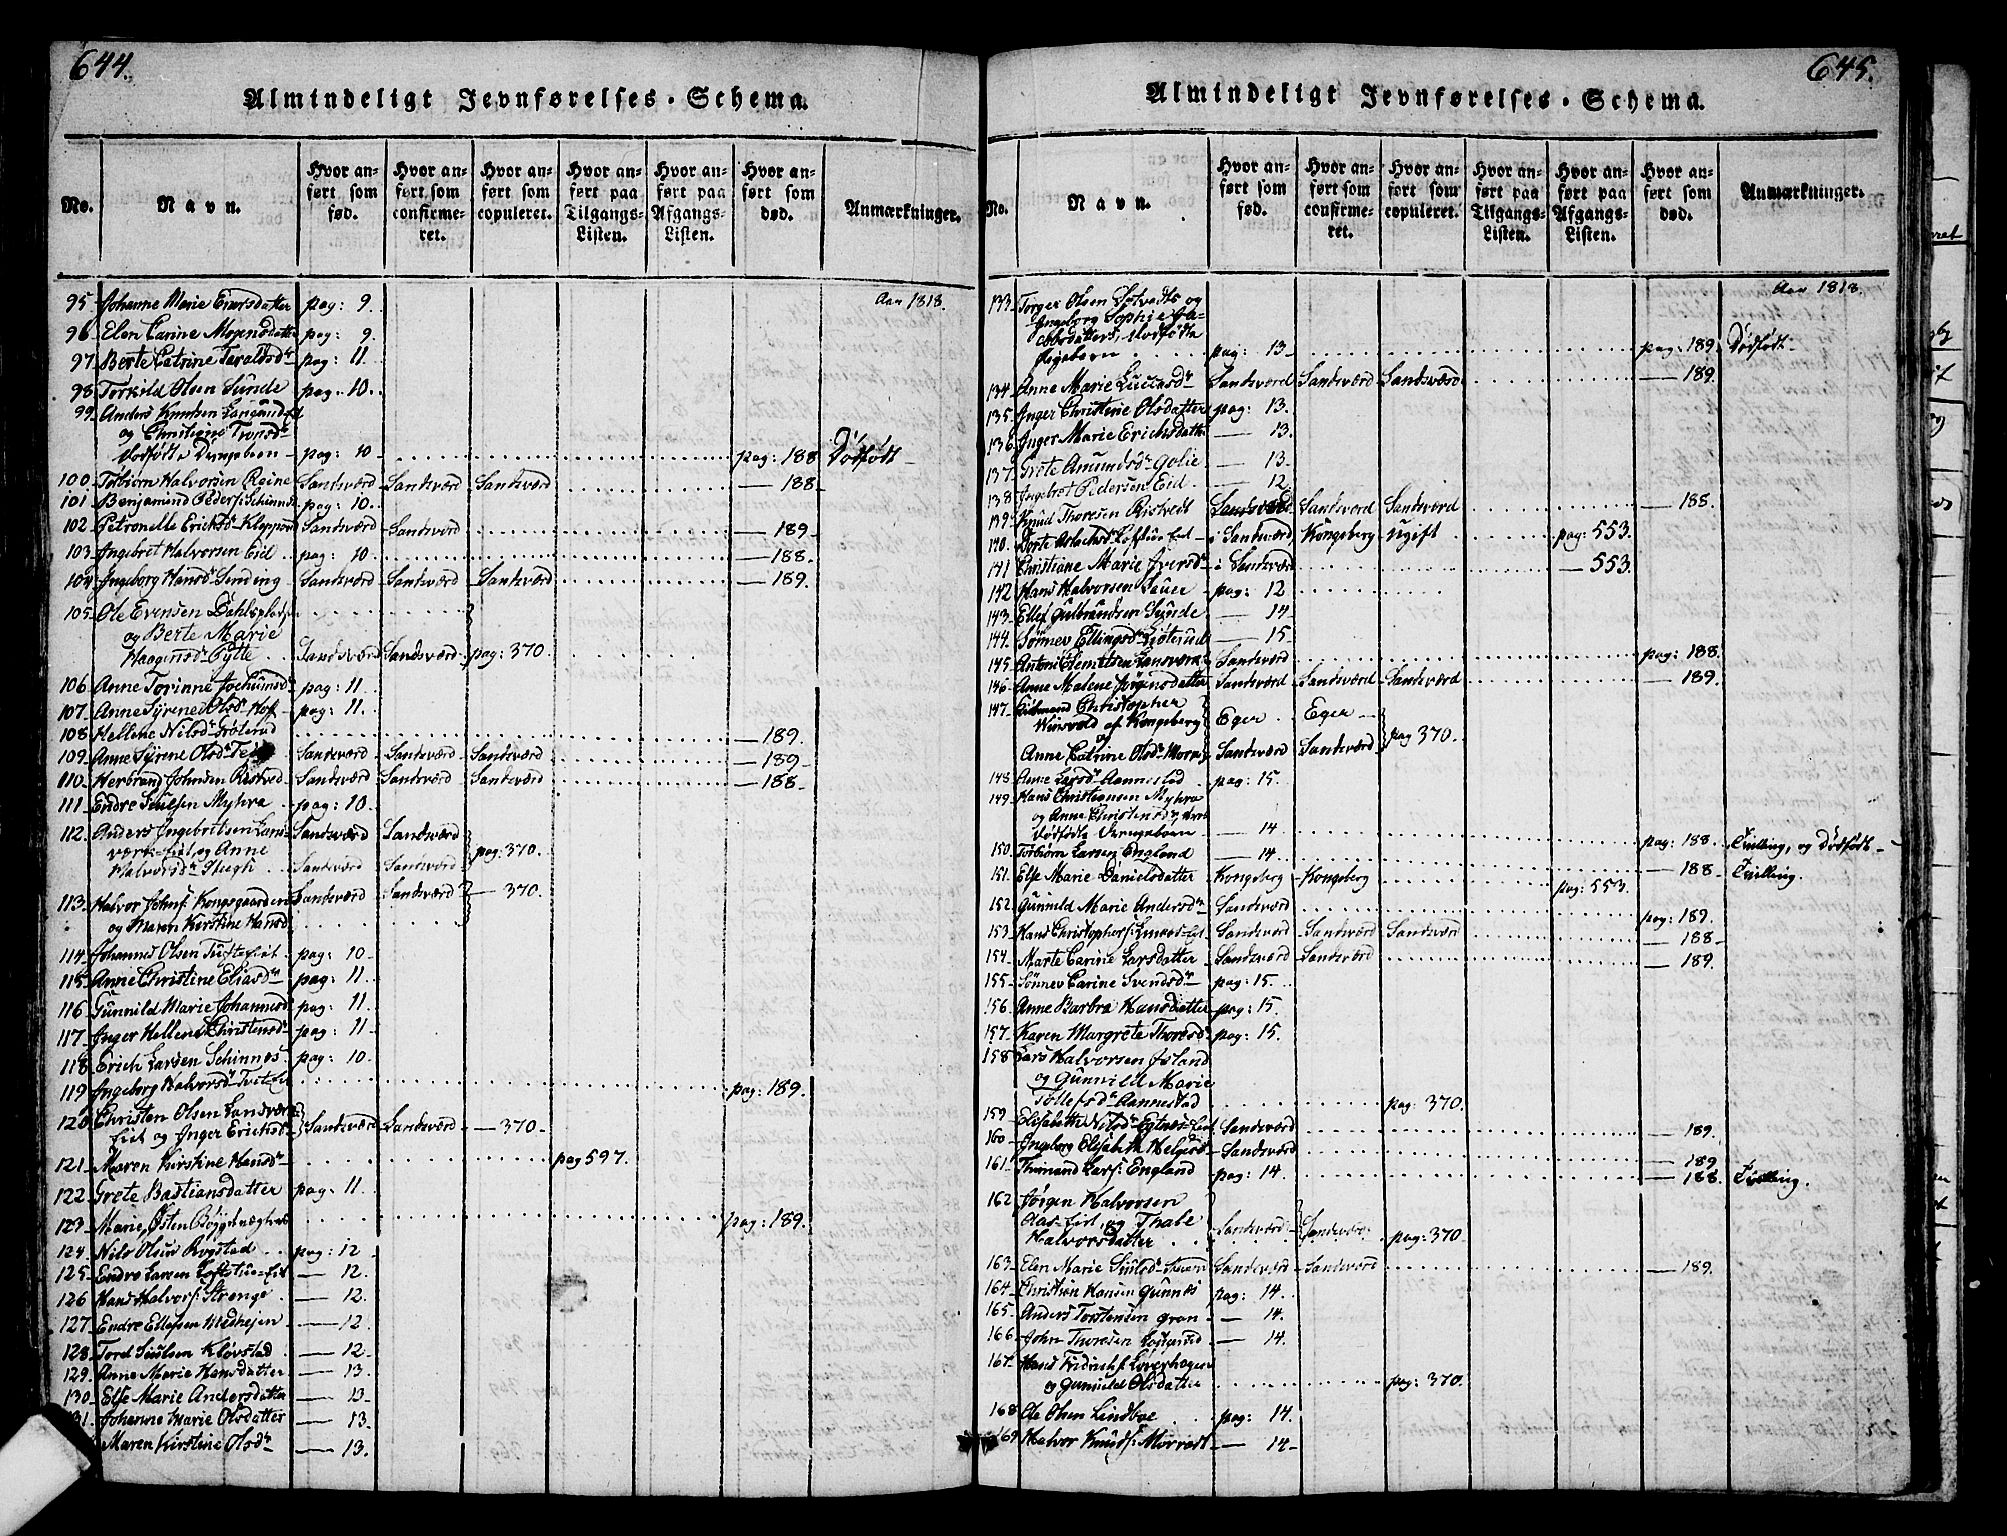 644.
Almindeligt Jevnførelses-Schema.
No.
Navn.
Hvor anført som fød.
Hvor anført som confirmeret.
Hvor anført som copuleret.
Hvor anført paa Tilgangs-Listen.
Hvor anført paa Afgangs-Listen.
Hvor anført som død.
Anmærkninger.
Aar 1818.
95 Johanne Marie Enersdatter pag: 9.
96 Elen Carine Mogensdatter pag: 9.
97 Berte Catrine Taraldsdr pag: 11.
98 Torkild Olsen Sunde pag: 10.
99 Anders Knutsen Langunds Eid
og Christiane Tronsdr
Dødfødte Drengebarn pag: 10 pag: 188 Dødfødt
100 Torbiørn Halvorsen Reine Sandsværd Sandsværd Sandsværd 188
101 Benjamind Peders: Schinnes pag: 10.
102 Petronelle Ericksdr Kloppen Sandsværd Sandsværd 189
103 Ingebret Halvorsen Eid pag: 10 188
104 Ingeborg Hansdr Sinding Sandsværd Sandsværd Sandsværd 189.
105 Ole Evensen Dahlsplads
og Berte Marie
Haagensdr Pytte Sandsværd Sandsværd pag: 370
106 Anne Torinne Jochumsdr pag: 11.
107 Anne Syrene Olsdr Hof pag: 11.
108 Hellene Nilsdr Grøterud 189.
109 Anne Syrene Olsdr Sandsværd Sandsværd Sandsværd 189
110 Herbrand Johnsen Ristved Sandsværd Sandsværd Sandsværd 188
111 Endre Siulsen Myhra pag: 10
112 Anders Ingebritsen Lans- Sandsværd Sandsværd
værk-Eid, og Anne pag: 370.
Halvorsdr Hugh Sandsværd Sandsværd
113 Halvor Johns: Kongsgaarden Sandsværd Sandsværd 370.
og Maren Kirstine Hansdr
114 Johannes Olsen Tufte-Eiet pag: 10
115 Anne Christine Eliasdr pag: 11.
116 Gunnild Marie Johannesdr pag: 11.
117 Inger Hellene Christensdr pag: 11
118 Erich Larsen Schinnes pag: 10.
119 Ingeborg Halvorsdr Tvet-Ei pag: 189.
120 Christen Olsen Landværk-
Eiet og Inger Ericksdr Sandsværd Sandsværd 370
121 Maren Kirstine Hansdr pag 597.
122 Grete Bastiansdatter pag: 11.
123 Marie Østen Bøygdneghus pag: 189.
124 Nils Olsen Rogstad pag: 12
125 Endre Larsen Loftstue-Eiet 12.
126 Hans Halvors: Strenge 12.
127 Endre Ellefsen Medhejen 12.
128 Tord Siulsen Kløvstad 12
129 Anne Marie Hansdatter 13.
130 Else Marie Andersdatter 13
131 Johanne Marie Olsdatter 13.
Maren Kirstine Olsdr 13.
645.
Almindeligt Jevnførelses-Schema.
No.
Navn.
Hvor anført som fød.
Hvor anført som confirmeret.
Hvor anført som copuleret.
Hvor anført paa Tilgangs-Listen.
Hvor anført paa Afgangs-Listen.
Hvor anført som død.
Anmærkninger.
Aar 1818.
133 Torger Olsen Sotvedts og
Ingeborg Sophie Ja-
cobsdatters, Dødfødte
Pigebarn pag: 13 pag: 189. Dødfødt
134 Anne Marie Lucasdr Sandsværd Sandsværd Sandsværd 189.
135 Inger Christine Olsdatter pag: 13.
136 Inger Marie Erichsdatter 13.
137 Grete Amundsdr Golie 13
138 Ingebret Pedersen Eid 12.
139 Knud Thoresen Ristvedt Sandsværd Sandsværd Sandsværd 188
140 Dorte Aslachsdr Loftstue Eiet i Sandsværd Kongsberg ugift pag: 553.
141 Christiane Marie Iversdr i Sandsværd 553.
142 Hans Halvorsen Sauer pag: 12
143 Ellef Gulbrandsen Sunde 14
144 Sønnev Ellingsdr Liøterud 15
145 Antoni Clemetsen Lansværk Sandsværd pag: 188.
146 Anne Malene Jørgensdatter Sandsværd Sandsværd Sandsværd 189.
147 Christopher
Winsvold af Kongsberg Eger Eger
og pag 370.
Anne Catrine Olsdr Moen Sandsværd Sandsværd
148 Anne Larsdr Aannestad pag: 15
149 Hans Christensen Myhra
og Anne Christensdr deres
Dødfødte Drengebarn 14 pag: 188. Tvilling, og Dødfødt
150 Torbiørn Larsen England 14 188 Tvilling.
151 Else Marie Danielsdatter Kongsberg Kongsberg pag: 553.
152 Gunnild Marie Andersdr Sandsværd pag: 189.
153 Hans Christophers: Eid Sandsværd Sandsværd Sandsværd 188
154 Marte Carine Larsdatter Sandsværd Sandsværd 189.
155 Sønnev Carine Svendsdr pag: 15
156 Anne Barbra Hansdatter pag: 15.
157 Karen Margrete Thoresdr pag: 15.
158 Lars Halvorsen Island
og Gunnild Marie
Tollefsdr Aannestad pag: 370.
159 Elisabeth Nilsdr Egtnes-Eiet Sandsværd 189.
160 Ingeborg Elisabeth Helgesdr Sandsværd 189
161 Thrinand Lars: England pag: 14. 188. Tvilling.
162 Jørgen Halvorsen
Aas-Eiet, og Thale
Halvorsdatter Sandsværd Sandsvær: pag: 370
163 Elen Marie Siulsdr Skuen Sandsværd Sandsværd 189.
164 Christian Hansen Gunnes pag: 14.
165 Anders Torstensen Gran 14.
166 John Thoresen Løgerud 14.
167 Hans Fridrich: Løverhagen
og Gunnild Olsdatter pag: 370.
168 Ole Olsen Lindboe pag: 14.
169 Halvor Knuds: Morvedt 14